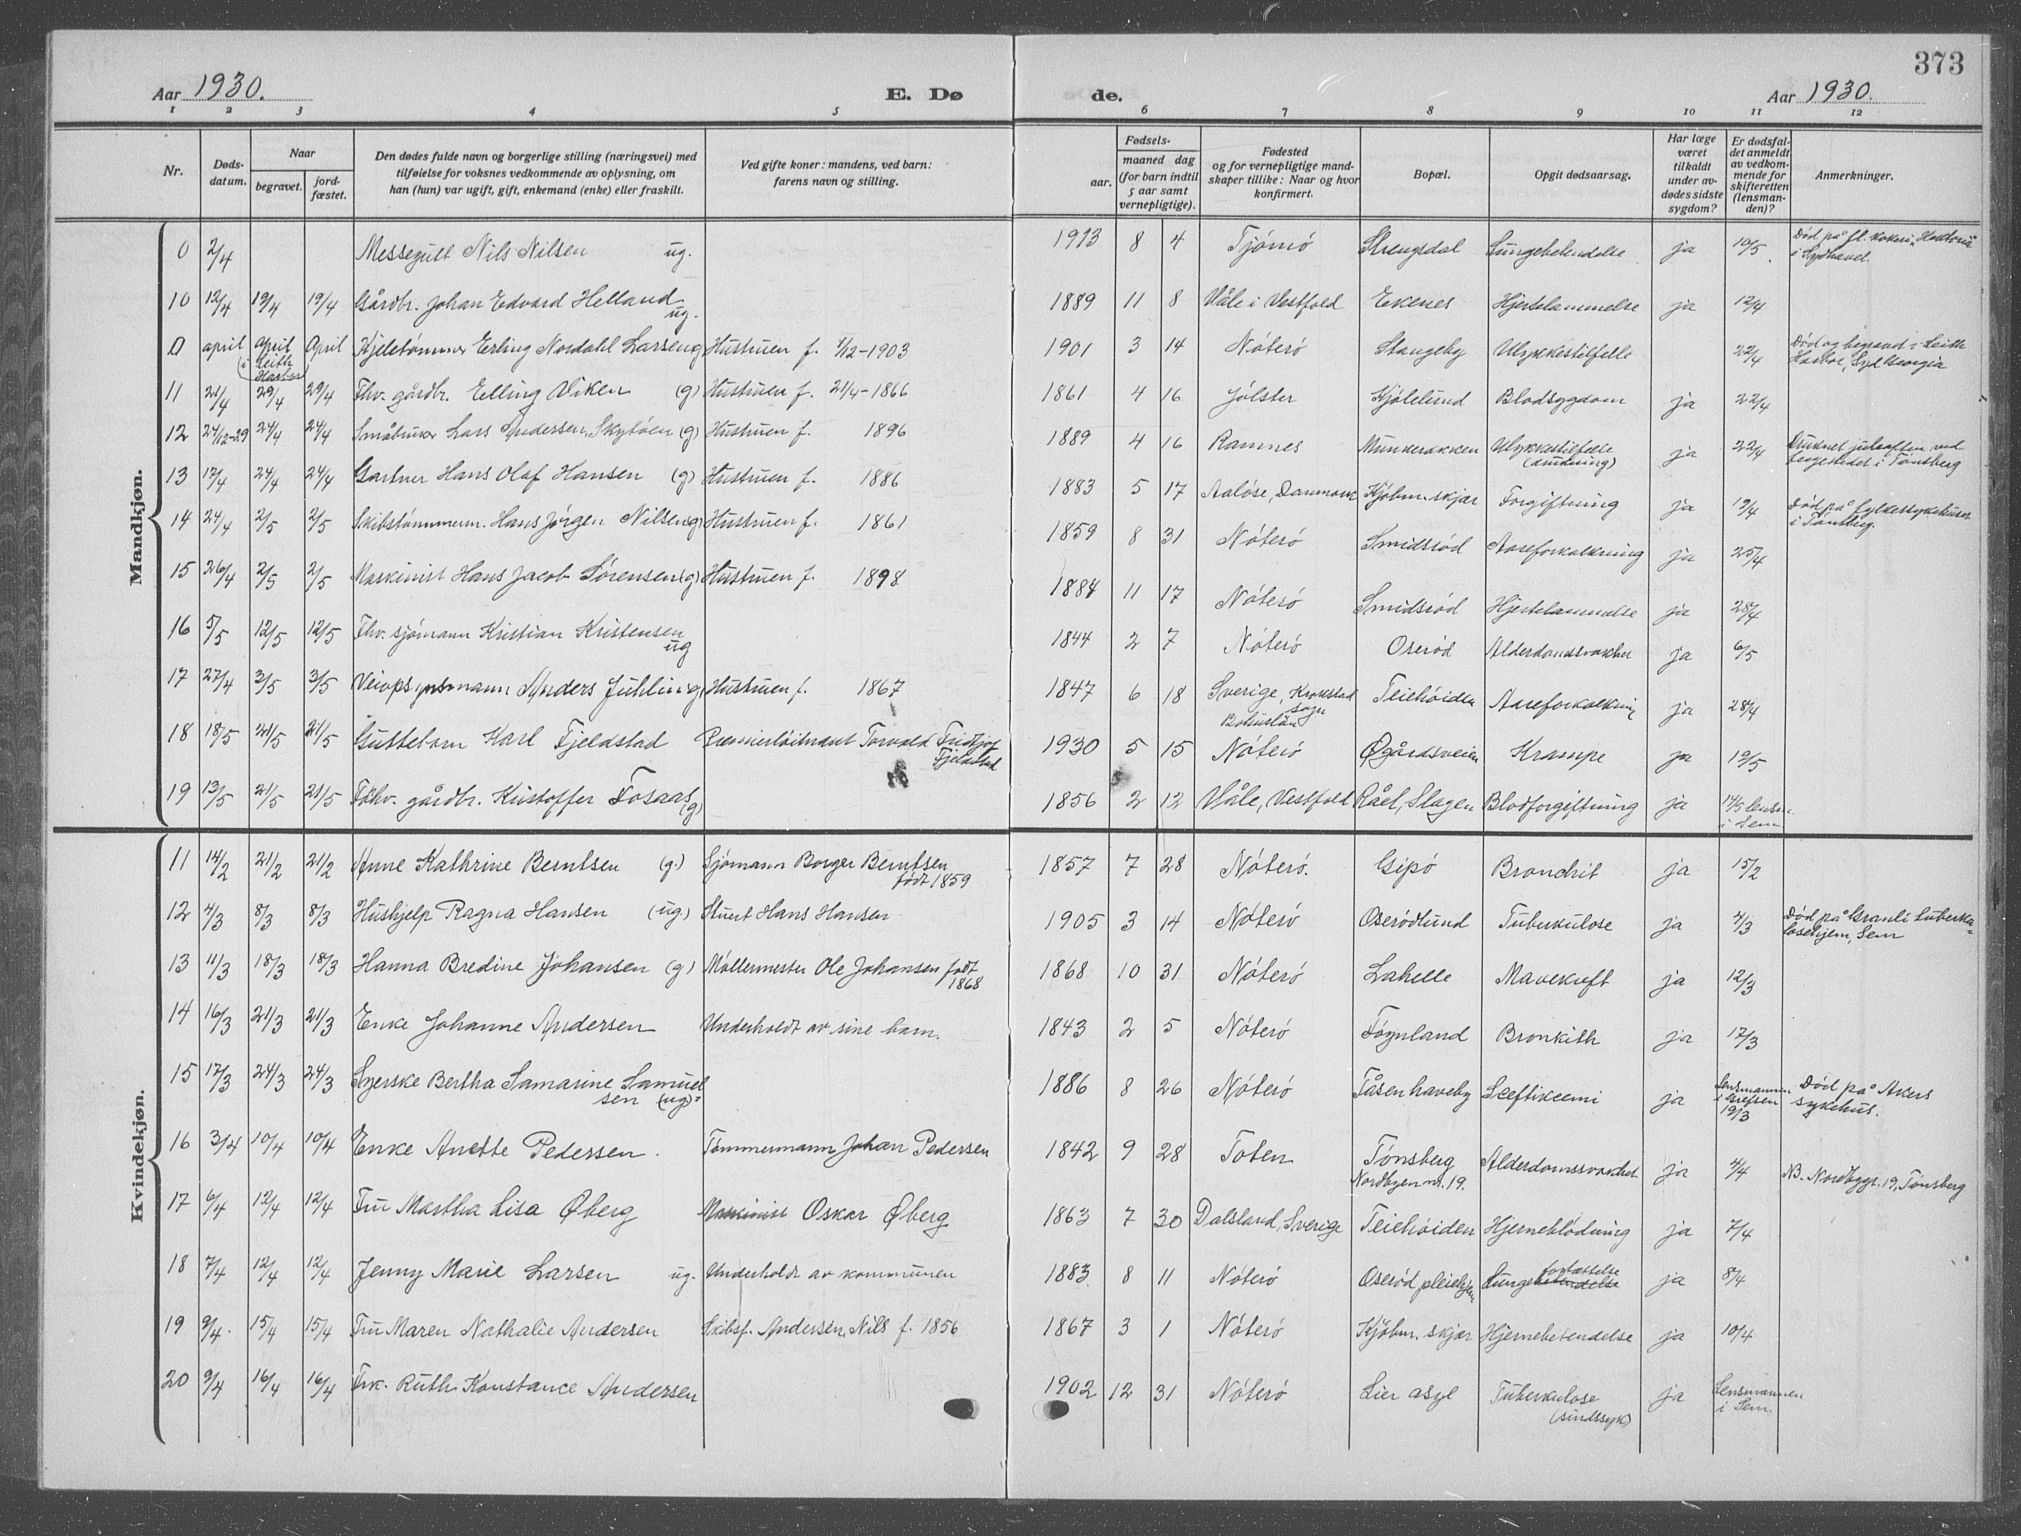 373
Aar 1930. E. Dø de. Aar 1930.
1 2 3 4 5 6 7 8 9 10 11 12
Nr. Døds-datum. Naar begravet. jord-fæstet. Den dødes fulde navn og borgerlige stilling (næringsvei) med tilføielse for voksnes vedkommende av oplysning, om han (hun) var ugift, gift, enkemand (enke) eller fraskilt. Ved gifte koner: mandens, ved barn: farens navn og stilling. Fødsels- aar. maaned dag (for barn indtil 5 aar samt vernepligtige). Fødested og for vernepligtige mand-skaper tillike: Naar og hvor konfirmert. Bopæl. Opgit dødsaarsag. Har læge været tilkaldt under av-dødes sidste sygdom? Er dødsfal-det anmeldt av vedkom-mende for skifteretten (lensman-den)? Anmerkninger.
Mandkjøn.
0 2/4 Messegutt Nils Nilsen ug. 1913 8 4 Tjømø Strengsdal Lungebetendelse ja 10/5 Død på fl. kokeri i Sydhavet.
10 12/4 19/4 19/4 Gårdbr. Johan Edvard Helland ug. 1889 11 8 Våle i Vestfold Ekenes Hjertelammelse ja 12/4
0 april april i Leith Harbor April Kjeletømmer Erling Nordahl Larsen g Hustruen f. 1/12-1903 1901 3 14 Nøterø Stangeby Ulykkestilfelle 22/4 Død og begravd i Leith Harbor, Syd Georgia
11 21/4 29/4 29/4 Fhv. gårdbr. Elling Viken (g) Hustruen f. 21/4-1866 1861 4 16 Jølster Kjølelund Blodsygdom ja 22/4
12 24/12-29 24/4 24/4 Småbruker Lars Andersen, Skytøen (g) Hustruen f. 1896 1889 4 16 Ramnes Munkerekken Ulykkestilfelle (drukning) ja 22/4 Druknet juleaften ved fergestedet i Tønsberg
13 17/4 24/4 24/4 Gartner Hans Olaf Hansen (g) Hustruen f. 1886 1883 5 17 Aaløse, Danmark Kjøbm. skjær Forgiftning ja 19/4 Død på Fylkessykehuset i Tønsberg.
14 24/4 2/5 2/5 Skibstømmerm. Hans Jørgen Nilsen (g) Hustruen f. 1861 1859 8 31 Nøterø Smidsrød Aareforkalkning ja 25/4
15 26/4 2/5 2/5 Maskinist Hans Jacob Sørensen (g) Hustruen f. 1898 1884 11 17 Nøterø Smidsrød Hjertelammelse ja 28/4
16 5/5 12/5 12/5 Fhv. sjømann Kristian Kristensen ug 1844 2 7 Nøterø Oserød Alderdomssvakhet ja 6/5
17 27/4 3/5 3/5 Veiopsynsmann Anders Juhlin (g) Hustruen f. 1867 1847 6 18 Sverige, Krokstad sogn Bohuslän Teiehøiden Aareforkalkning ja 28/4
18 18/5 21/5 21/5 Guttebarn Karl Fjeldstad Premierløitnant Torvald Fridtjof Fjeldstad 1930 5 15 Nøterø Øgårdsveien Krampe ja 19/5
19 13/5 21/5 21/5 Fhv. gårdbr. Kristoffer Fosaas (g) 1856 2 12 Våle, Vestfold Råel, Slagen Blodforgiftning ja 14/5 lensm. i Sem
Kvindekjøn.
11 14/2 21/2 21/2 Anne Kathrine Berntsen (g.) Sjømann Borger Berntsen født 1859 1857 7 28 Nøterø. Gipø Bronchit ja 15/2
12 4/3 8/3 8/3 Hushjelp Ragna Hansen (ug.) Stuert Hans Hansen 1905 3 14 Nøterø Oserødlund Tuberkulose ja 4/3 Død på Granli tuberkulosehjem, Sem
13 11/3 18/3 18/3 Hanna Bredine Johansen (g) Møllermester Ole Johansen født 1868 1868 10 31 Nøterø Lahelle Mavekreft ja 12/3
14 16/3 21/3 21/3 Enke Johanne Andersen Underholdt av sine barn. 1843 2 5 Nøterø Føynland Bronkith ja 17/3
15 17/3 24/3 24/3 Syerske Bertha Samarine Samuelsen (ug) 1886 8 26 Nøterø Tåsen haveby Sceftikeemi ja Lensmannen i Grefsen 19/3 Død på Akers sykehus.
16 3/4 10/4 10/4 Enke Anette Pedersen. Tømmermann Johan Pedersen 1842 9 28 Toten Tønsberg Nordbyen nr. 19. Alderdomssvakhet ja 4/4 NB. Nordbygt. 19, Tønsberg
17 6/4 12/4 12/4 Fru Martha Lisa Øberg Maskinist Oskar Øberg 1863 7 30 Dalsland, Sverige Teiehøiden Hjerneblødning ja 7/4
18 7/4 12/4 12/4 Jenny Marie Larsen ug. Underholdt av kommunen 1883 8 11 Nøterø Oserød pleiehjem Lungebetendelse ja 8/4
19 9/4. 15/4 15/4 Fru Maren Nathalie Andersen Skibsf. Andersen, Nils f. 1856 1867 3 1 Nøterø Kjøbm. skjær Hjernebetendelse ja 10/4
20 9/4 16/4 16/4 Frk. Ruth Konstance Andersen 1902 12 31 Nøterø Lier asyl Tuberkulose (sindssyk) ja Lensmannen i Sem.